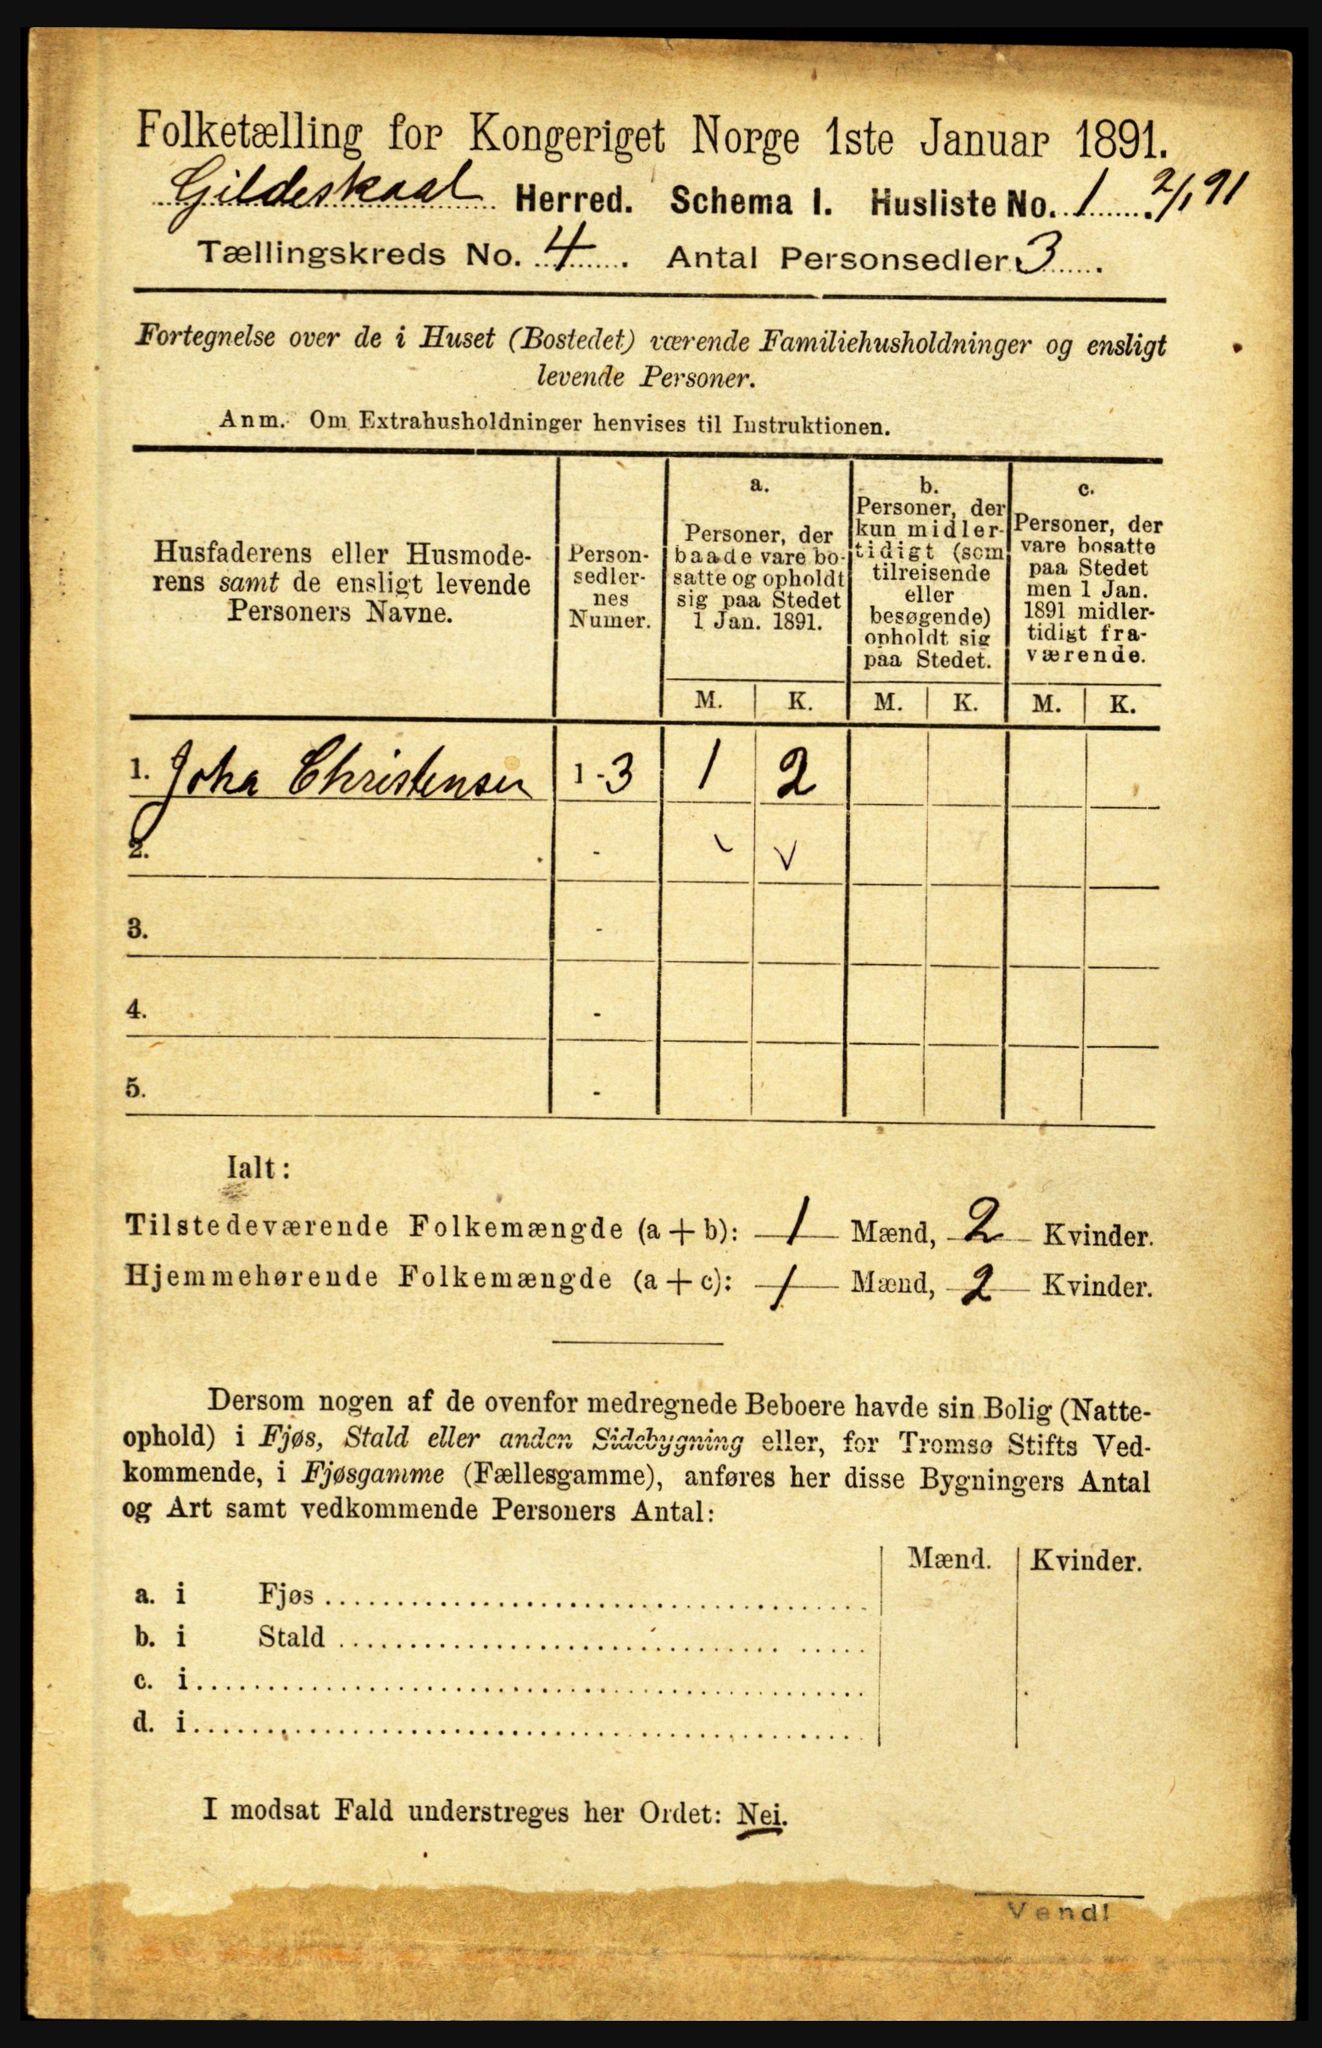 Folketælling for Kongeriget Norge 1ste Januar 1891.
Gildeskaal Herred. Schema I. Husliste No. 1. 2/1 91
Tællingskreds No. 4. Antal Personsedler: 3.
Fortegnelse over de i Huset (Bostedet) værende Familiehusholdninger og ensligt
levende Personer.
Anm. Om Extrahusholdninger henvises til Instruktionen.
Husfaderens eller Husmode-
rens samt de ensligt levende
Personers Navne.
Person-
sedler-
nes
Numer.
a.
Personer, der
baade vare bo-
satte og opholdt
sig paa Stedet
1 Jan. 1891.
b.
Personer, der
kun midler-
tidigt (som
tilreisende
eller
besøgende)
opholdt sig
paa Stedet.
c.
Personer, der
vare bosatte
paa Stedet
men 1 Jan.
1891 midler-
tidigt fra-
værende.
M. K. M. K. M. K.
1. Joha Christensen 1-3 1 2
2. -
3. -
4. -
5. -
Ialt:
Tilstedeværende Folkemængde (a + b): 1 Mænd, 2 Kvinder.
Hjemmehørende Folkemængde (a + c): 1 Mænd, 2 Kvinder.
Dersom nogen af de ovenfor medregnede Beboere havde sin Bolig (Natte-
ophold) i Fjøs, Stald eller anden Sidebygning eller, for Tromsø Stifts Ved-
kommende, i Fjøsgamme (Fællesgamme), anføres her disse Bygningers Antal
og Art samt vedkommende Personers Antal:
Mænd. Kvinder.
a. i Fjøs
b. i Stald
c. i
d. i
I modsat Fald understreges her Ordet: Nei.
Vend!